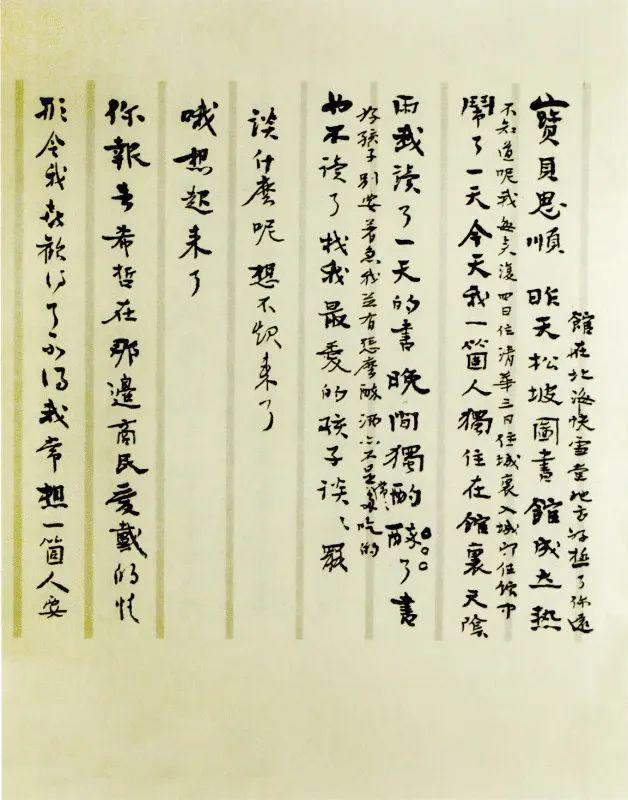 館在北海快雪堂地方好極了你還
寶貝思順 昨天松坡圖書館成立熱
不知道呢我每來復四日住清華三日住城裏入城即住館中
鬧了一天今天我一箇人獨住在館裏天陰
雨我读了一天的書晚間獨酌醉了書
好孩子别要着急我並冇怎麼醉酒亦不是常、多吃的
也不读了找我最愛的孩子谈、罷
谈什麼呢想不起来了
哦想起来了
你報告希哲在那邊商民愛戴的情
形令我喜歡得了不得我常想一箇人要